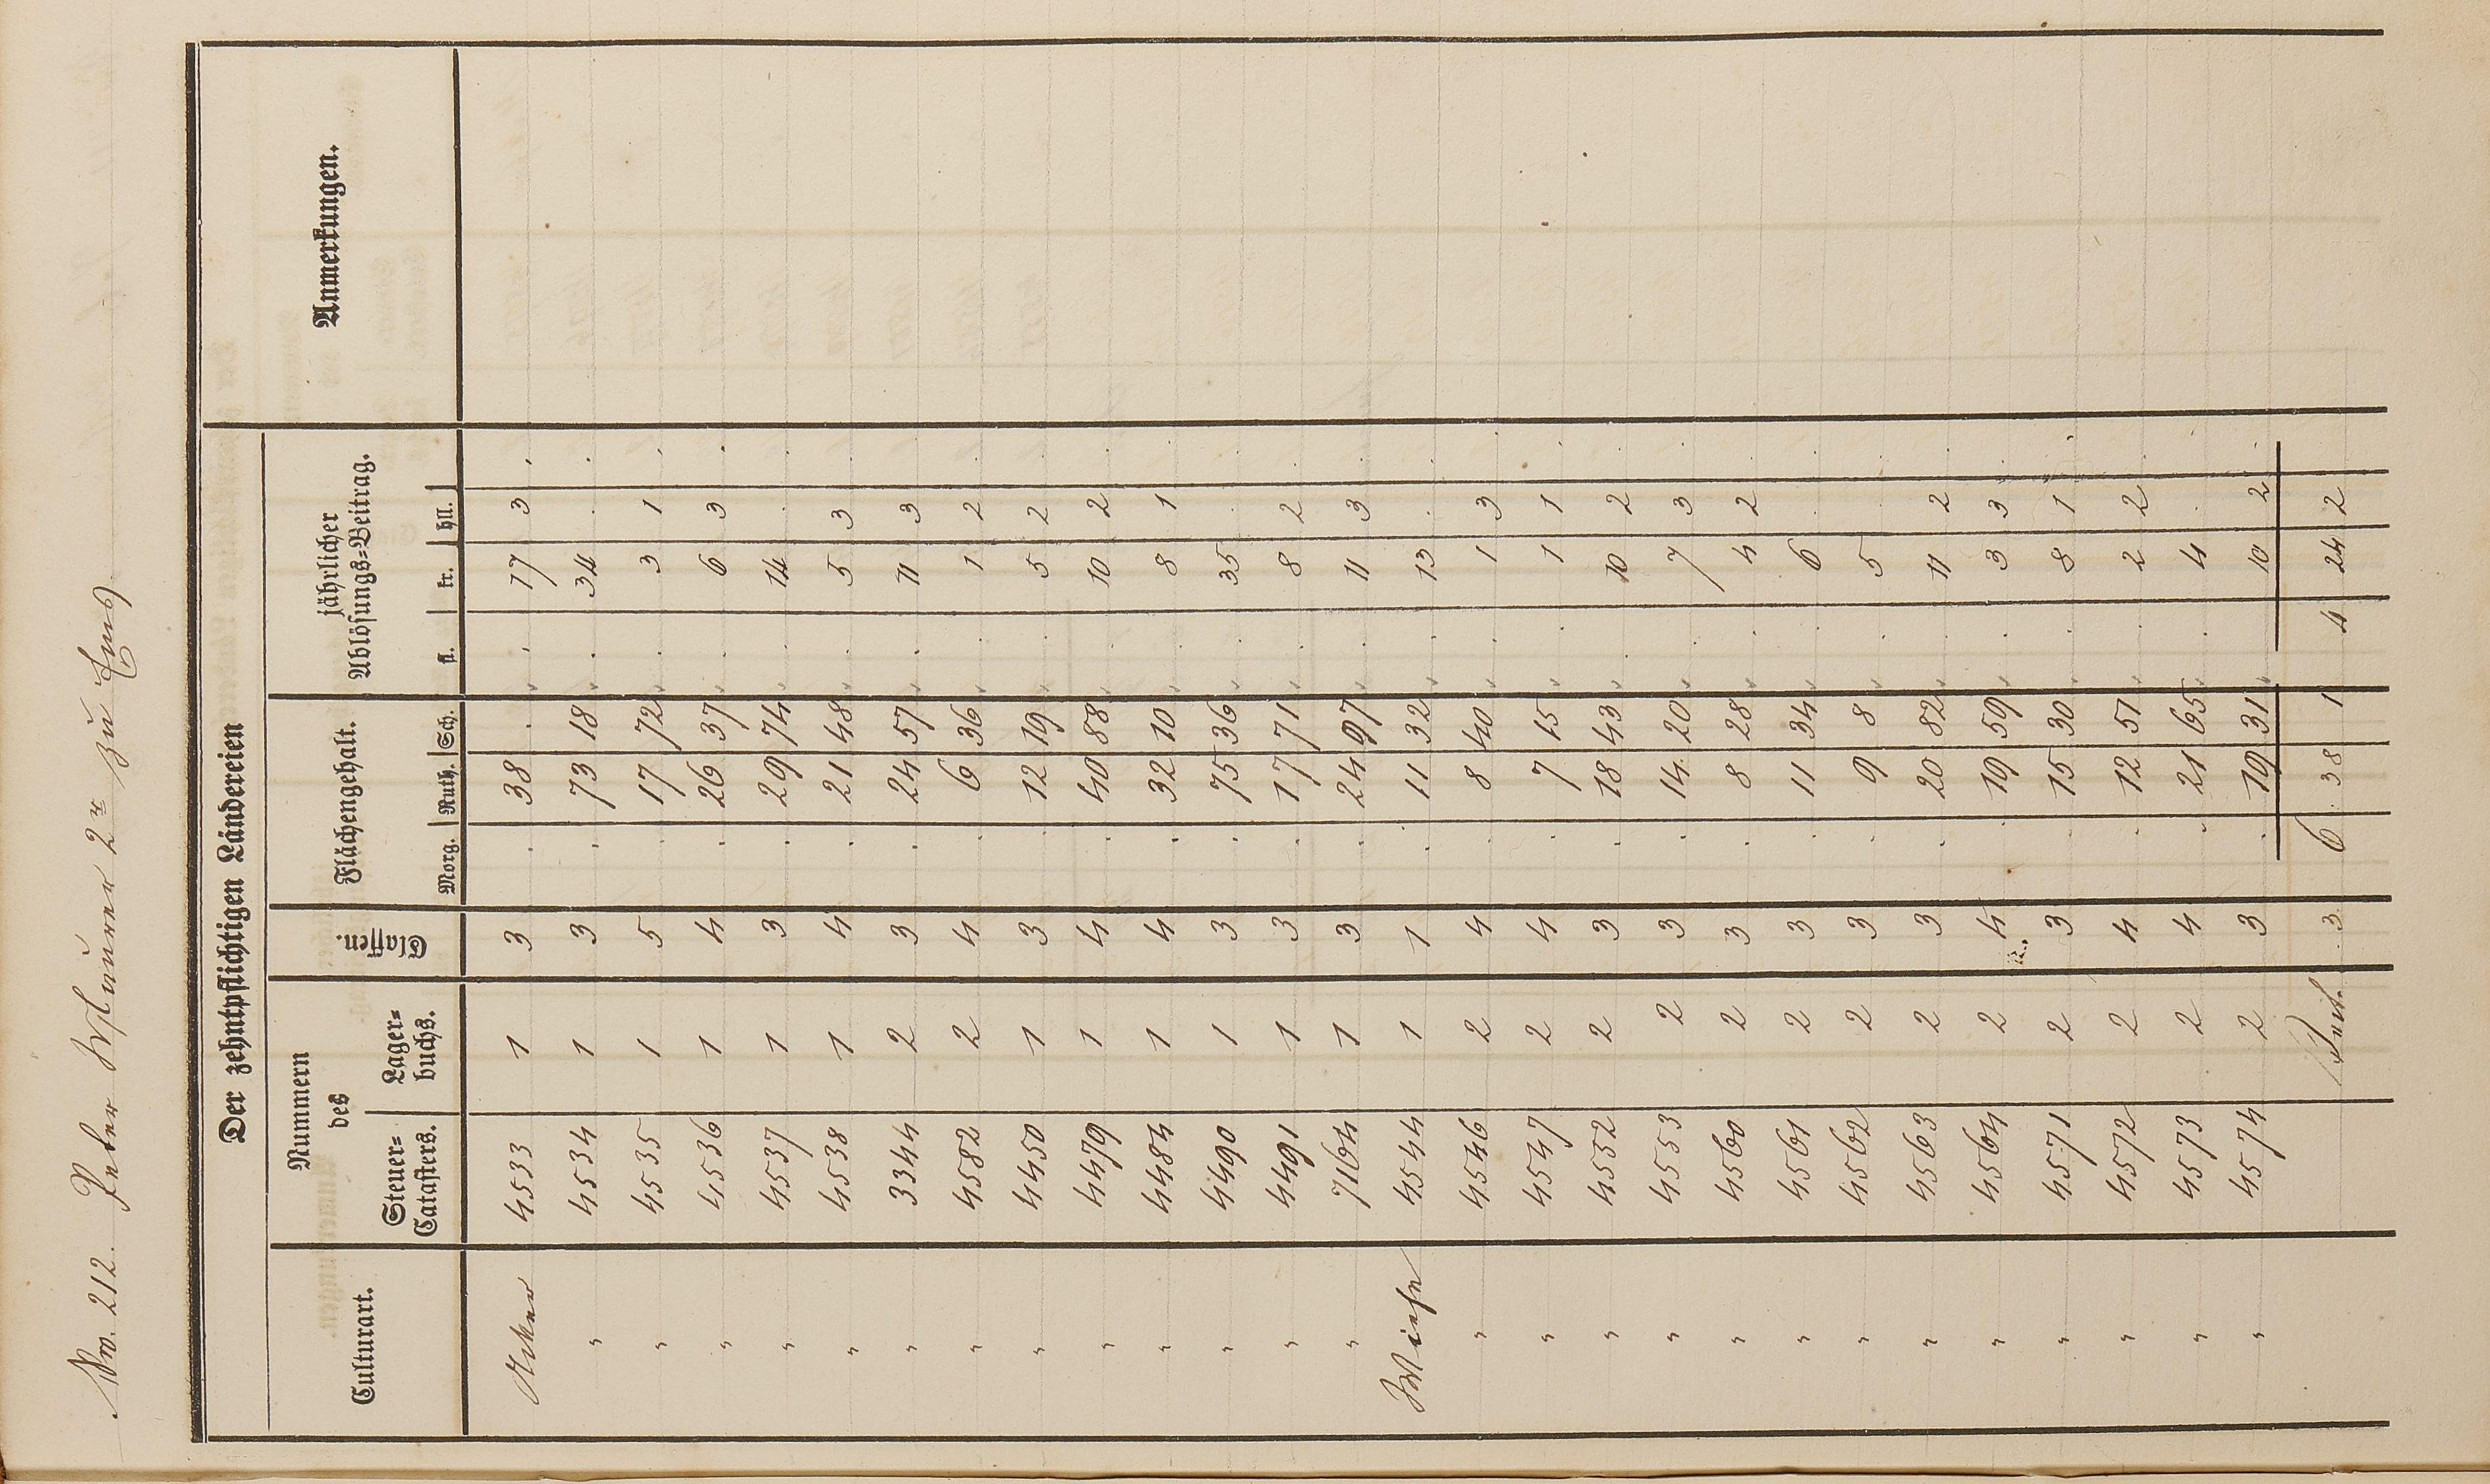 No. 212. Peter Wßmurer 2r zu Ems
Der zehntpflichtigen Ländereien
Culturart. Nummern des Steuer=Catasters. Lager=buchs. Classen. Flächengehalt. Morg. Ruth. Sch. jährlicher Ablösungs=Beitrag. fl. kr. hll. Anmerkungen.
Acker 4533 1 3 . 38 . . 17 3
" 4534 1 3 . 73 18 . 34 .
" 4535 1 5 . 17 72 . 3 1
" 4536 1 4 . 26 37 . 6 3
" 4537 1 3 . 29 74 . 14 .
" 4538 1 4 . 21 48 . 5 3
" 3344 2 3 . 24 57 . 11 3
" 4582 2 4 . 6 36 . 1 2
" 4450 1 3 . 12 19 . 5 2
" 4479 1 4 . 40 88 . 10 2
" 4484 1 4 . 32 10 . 8 1
" 4490 1 3 . 75 36 . 35 .
" 4491 1 3 . 17 71 . 8 2
" 7164 1 3 . 24 97 . 11 3
Wiese 4544 1 1 . 11 32 . 13 .
" 4546 2 4 . 8 40 . 1 3
" 4547 2 4 . 7 15 . 1 1
" 4552 2 3 . 18 43 . 10 2
" 4553 2 3 . 14 20 . 7 3
" 4560 2 3 . 8 28 . 4 2
" 4561 2 3 . 11 34 . 6 .
" 4562 2 3 . 9 8 . 5 .
" 4563 2 3 . 20 82 . 11 2
" 4564 2 4 . 19 59 . 3 3
" 4571 2 3 . 15 30 . 8 1
" 4572 2 4 . 12 51 . 2 2
" 4573 2 4 . 21 65 . 4 .
" 4574 2 3 . 19 31 . 10 2
3. 6 38 1 4 24 2